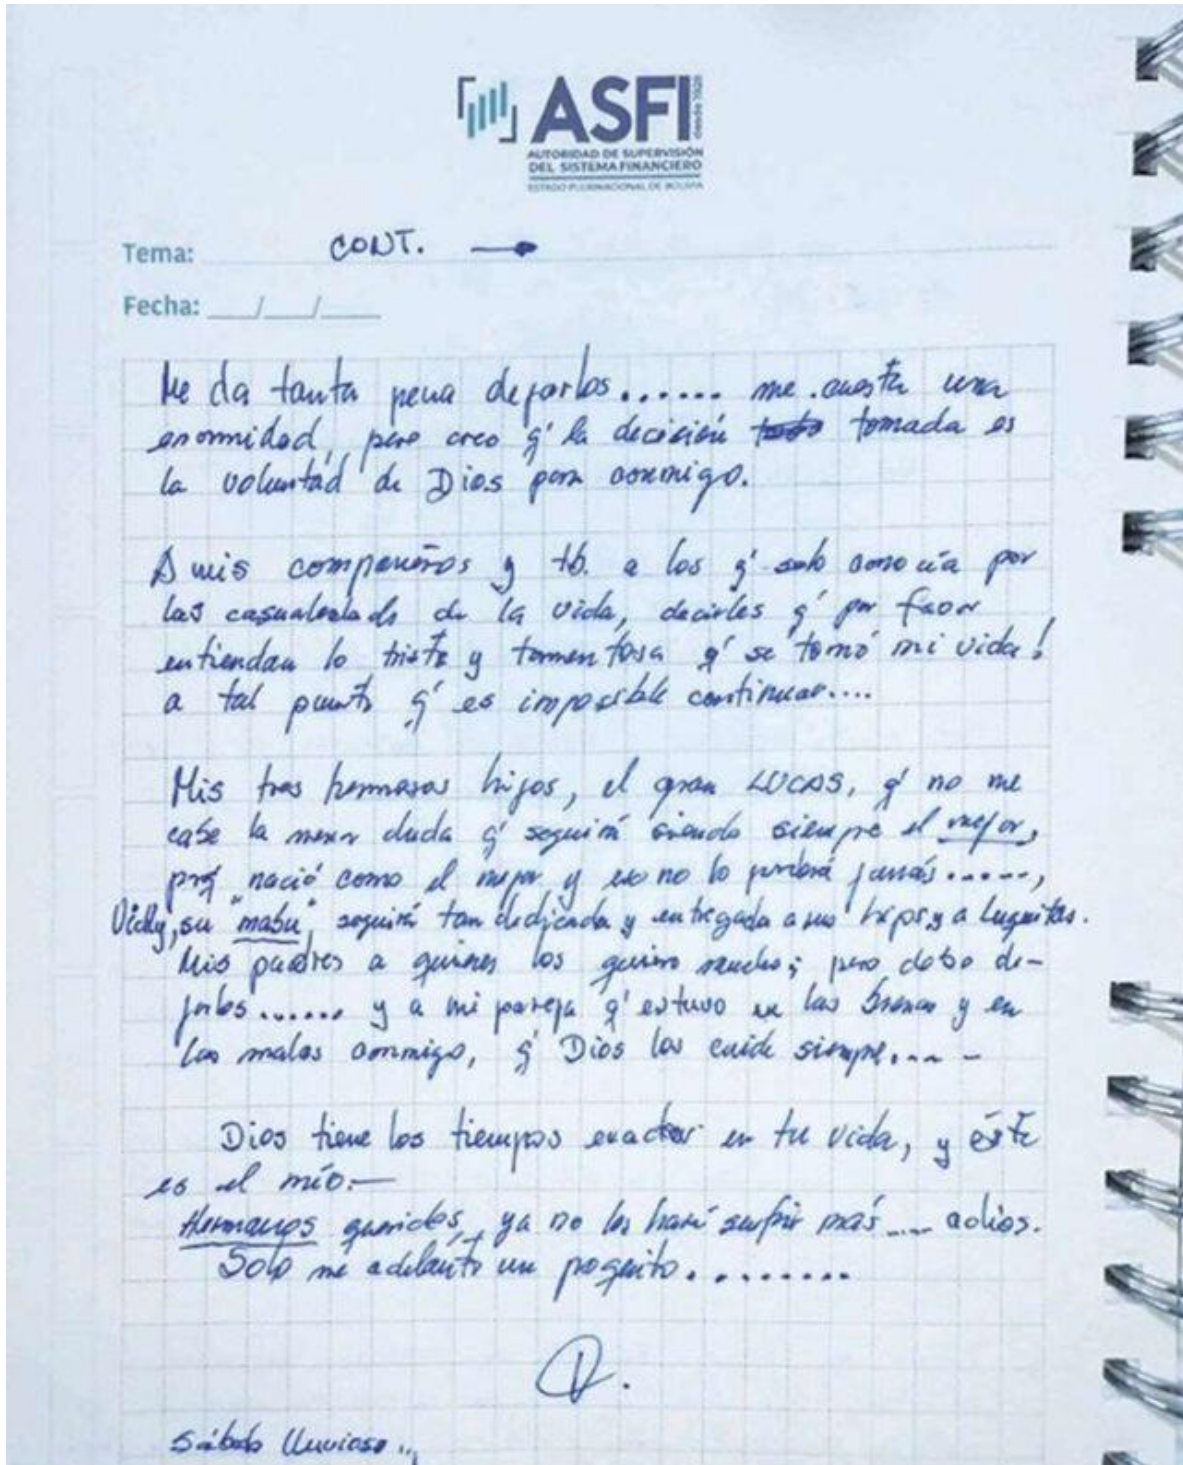 ASFI
desde 1928
AUTORIDAD DE SUPERVISIÓN
DEL SISTEMA FINANCIERO
ESTADO PLURINACIONAL DE BOLIVIA
Tema: CONT.
Fecha: ___/___/____
Me da tanta pena dejarlos...... me cuesta una
enormidad, pero creo q' la decisión tomada es
la voluntad de Dios para conmigo.
A mis compañeros y tb. a los q' solo conocía por
las casualidads de la vida, decirles q' por favor
entiendan lo triste y tormentosa q' se tornó mi vida!
a tal punto q' es imposible continuar....
Mis tres hermosos hijos, el gran LUCAS, q' no me
cabe la menor duda q' seguirá siendo siempre el mejor,
prq nació como el mejor y eso no lo perderá jamás.....,
Vicky, su "mabu", seguirá tan dedicada y entregada a sus hijos y a Luquitas.
Mis padres a quienes los quiero mucho; pero debo de-
jarlos...... y a mi pareja q' estuvo en las buenas y en
las malas conmigo, q' Dios los cuide siempre....-
Dios tiene los tiempos exactos en tu vida, y éste
es el mío.-
Hermanos queridos, ya no los haré sufrir más... adios.
Solo me adelanto un poquito.........
Sábado lluvioso..,